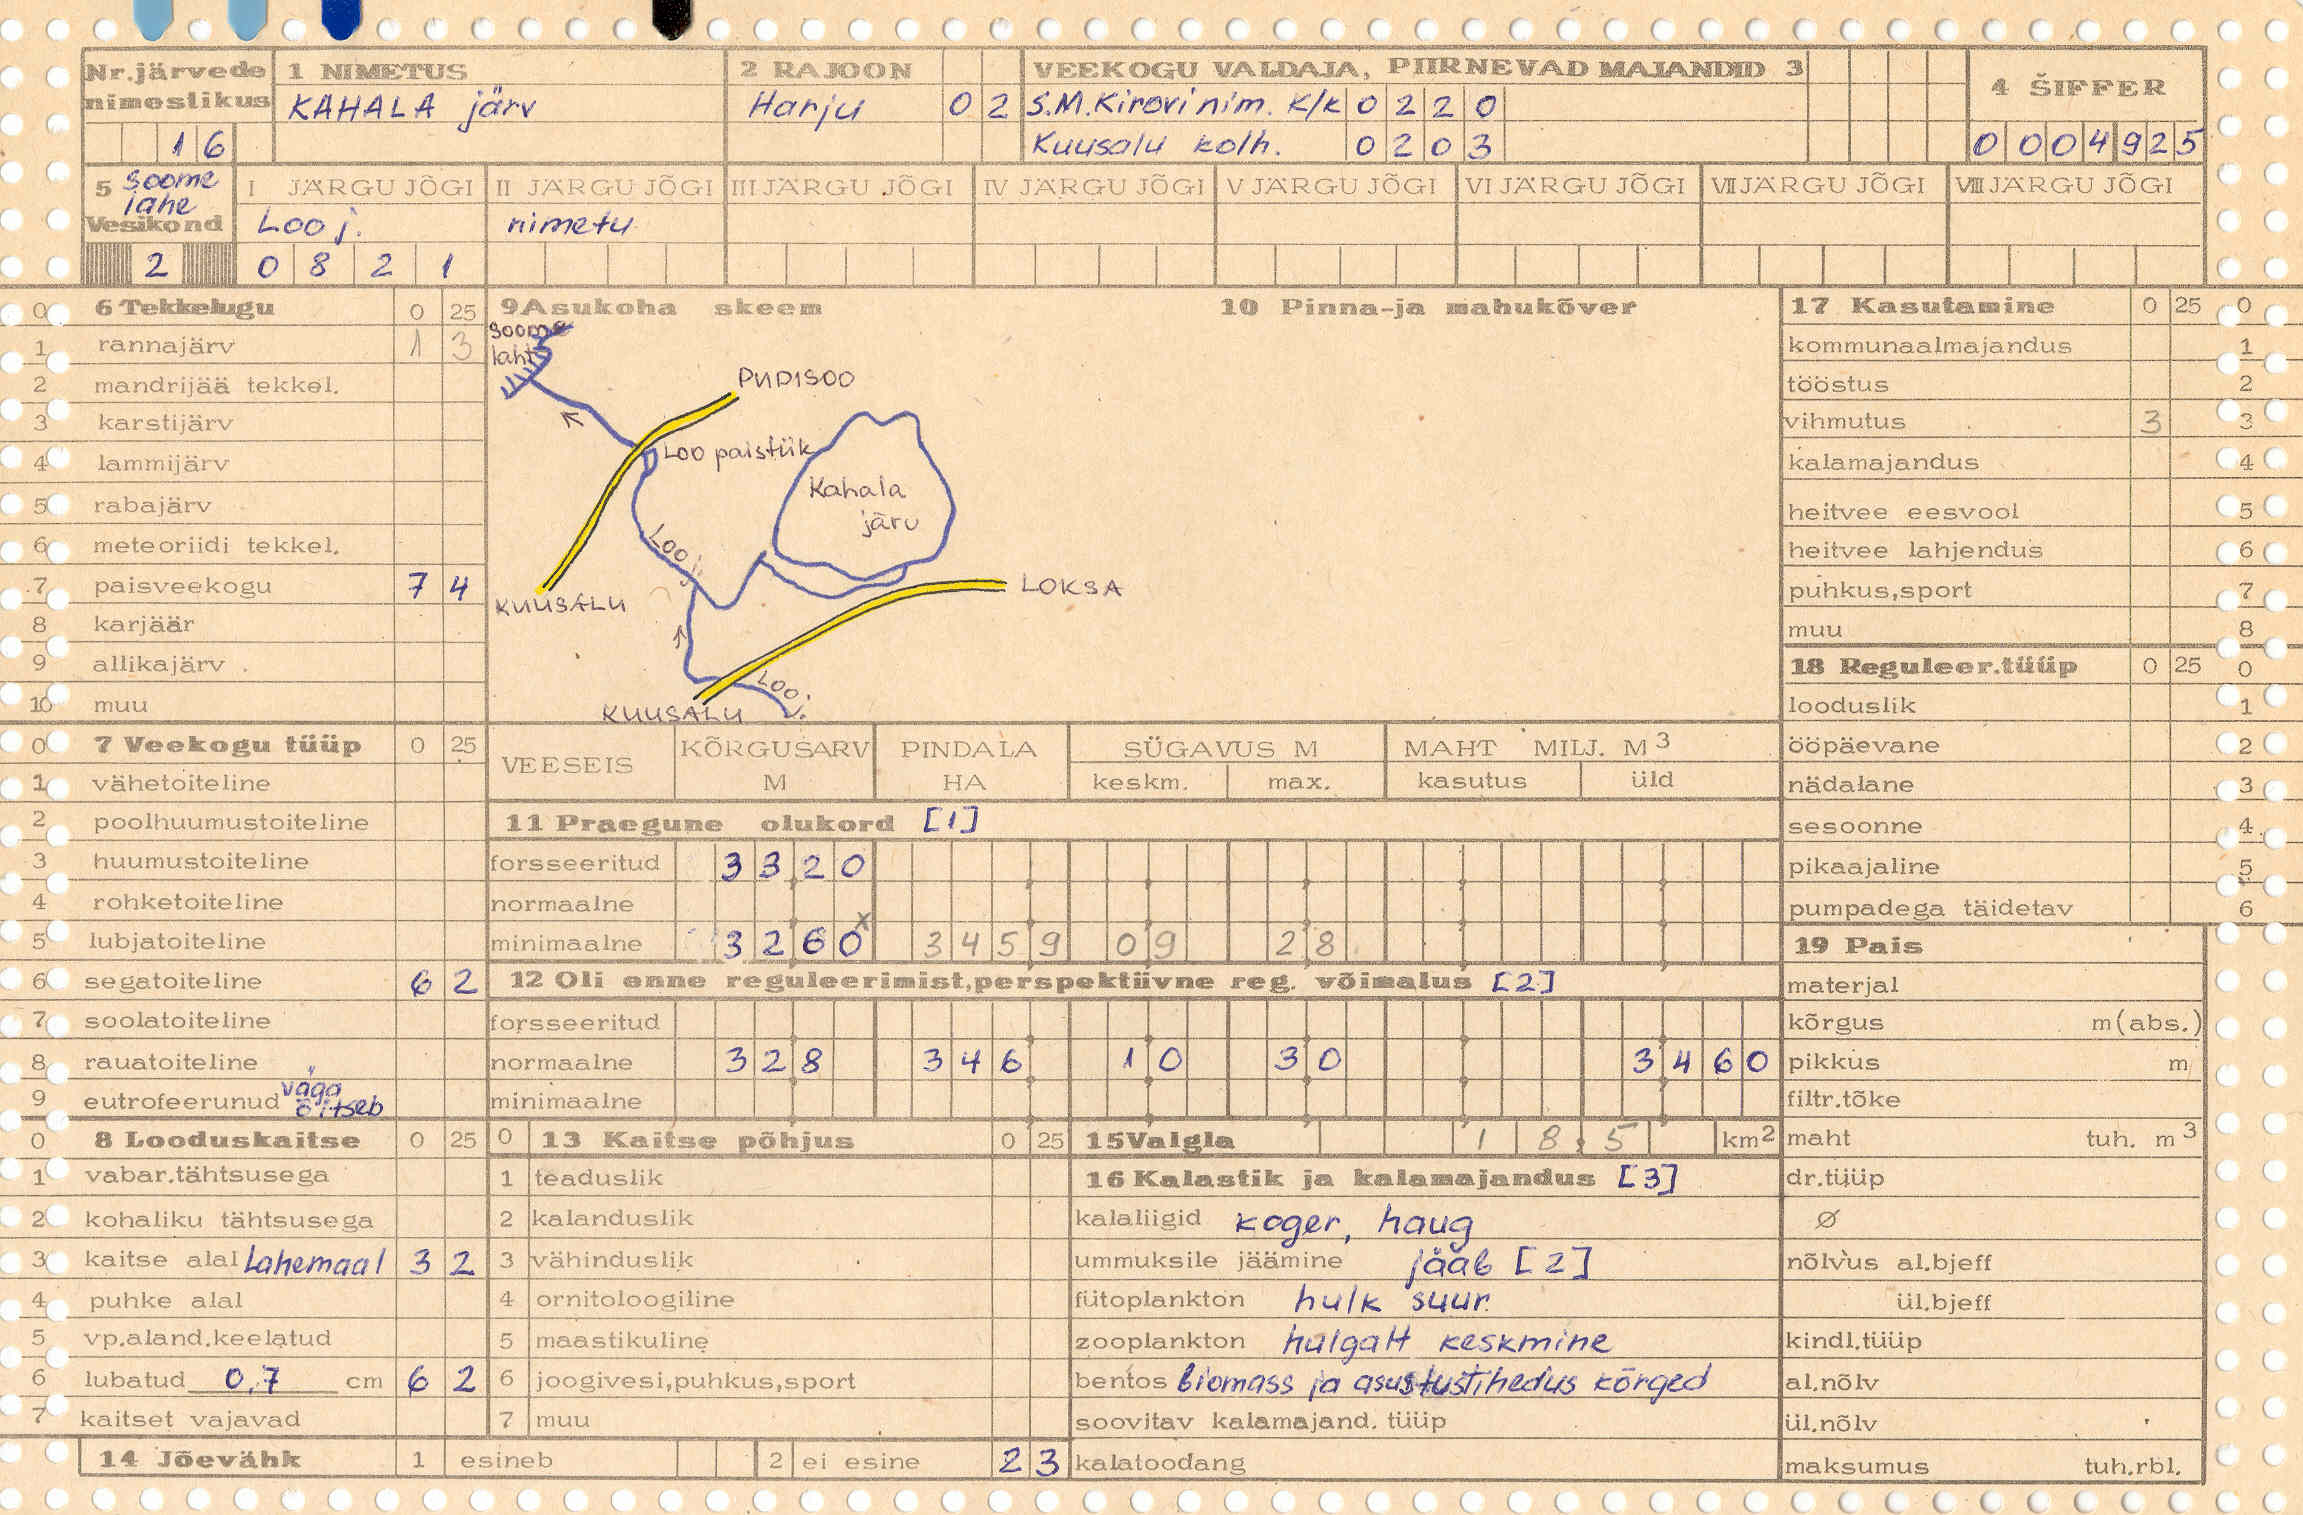 Nr. järvede nimestikus
16
1 NIMETUS
KAHALA järv
2 RAJOON
Harju 0 2
VEEKOGU VALDAJA, PIIRNEVAD MAJANDID 3
S.M.Kirovi nim. k/k 0 2 2 0
Kuusalu kolh. 0 2 0 3
4 ŠIFFER
0 0 0 4 9 2 5
5 Soome lahe Vesikond
2
I JÄRGU JÕGI
Loo j.
0 8 2 1
II JÄRGU JÕGI
nimetu
III JÄRGU JÕGI
IV JÄRGU JÕGI
V JÄRGU JÕGI
VI JÄRGU JÕGI
VII JÄRGU JÕGI
VIII JÄRGU JÕGI
0 6 Tekkelugu 0 25
1 rannajärv 1 3
2 mandrijää tekkel.
3 karstijärv
4 lammijärv
5 rabajärv
6 meteoriidi tekkel.
7 paisveekogu 7 4
8 karjäär
9 allikajärv
10 muu
0 7 Veekogu tüüp 0 25
1 vähetoiteline
2 poolhuumustoiteline
3 huumustoiteline
4 rohketoiteline
5 lubjatoiteline
6 segatoiteline 6 2
7 soolatoiteline
8 rauatoiteline
9 eutrofeerunud väga õitseb
0 8 Looduskaitse 0 25
1 vabar.tähtsusega
2 kohaliku tähtsusega
3 kaitse alal Lahemaal 3 2
4 puhke alal
5 vp.aland.keelatud
6 lubatud 0,7 cm 6 2
7 kaitset vajavad
9 Asukoha skeem
Soome laht
PUDISOO
Loo paistiik
Kahala järv
Loo j.
KUUSALU
LOKSA
Loo j.
KUUSALU
10 Pinna-ja mahukõver
VEESEIS
KÕRGUSARV M
PINDALA HA
SÜGAVUS M
keskm. max.
MAHT MILJ. M3
kasutus üld
11 Praegune olukord [1]
forsseeritud 3 3 2 0
normaalne
minimaalne 3 2 6 0x 3 4 5 9 0 9 2 8
12 Oli enne reguleerimist,perspektiivne reg. võimalus [2]
forsseeritud
normaalne 3 2 8 3 4 6 1 0 3 0 3 4 6 0
minimaalne
0 13 Kaitse põhjus 0 25
1 teaduslik
2 kalanduslik
3 vähinduslik
4 ornitoloogiline
5 maastikuline
6 joogivesi,puhkus,sport
7 muu
14 Jõevähk 1 esineb 2 ei esine 2 3
15 Valgla 1 8,5 km2
16 Kalastik ja kalamajandus [3]
kalaliigid koger, haug
ummuksile jäämine jääb [2]
fütoplankton hulk suur.
zooplankton hulgalt keskmine
bentos biomass ja asustustihedus kõrged
soovitav kalamajand. tüüp
kalatoodang
17 Kasutamine 0 25 0
kommunaalmajandus 1
tööstus 2
vihmutus 3 3
kalamajandus 4
heitvee eesvool 5
heitvee lahjendus 6
puhkus,sport 7
muu 8
18 Reguleer.tüüp 0 25 0
looduslik 1
ööpäevane 2
nädalane 3
sesoonne 4
pikaajaline 5
pumpadega täidetav 6
19 Pais
materjal
kõrgus m(abs.)
pikkus m
filtr.tõke
maht tuh. m3
dr.tüüp
Ø
nõlvus al.bjeff
ül.bjeff
kindl.tüüp
al.nõlv
ül.nõlv
maksumus tuh.rbl.